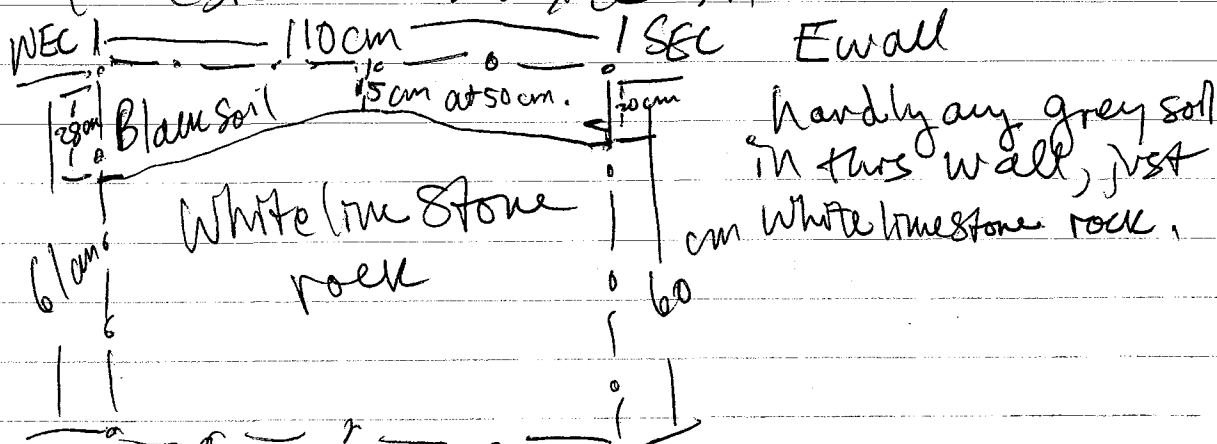 NEC 110cm SEC E wall
28cm Black soil 15cm at 50cm. 20cm hardly any grey soil
in this wall, just
White limestone cm white limestone rock.
61cm rock 60